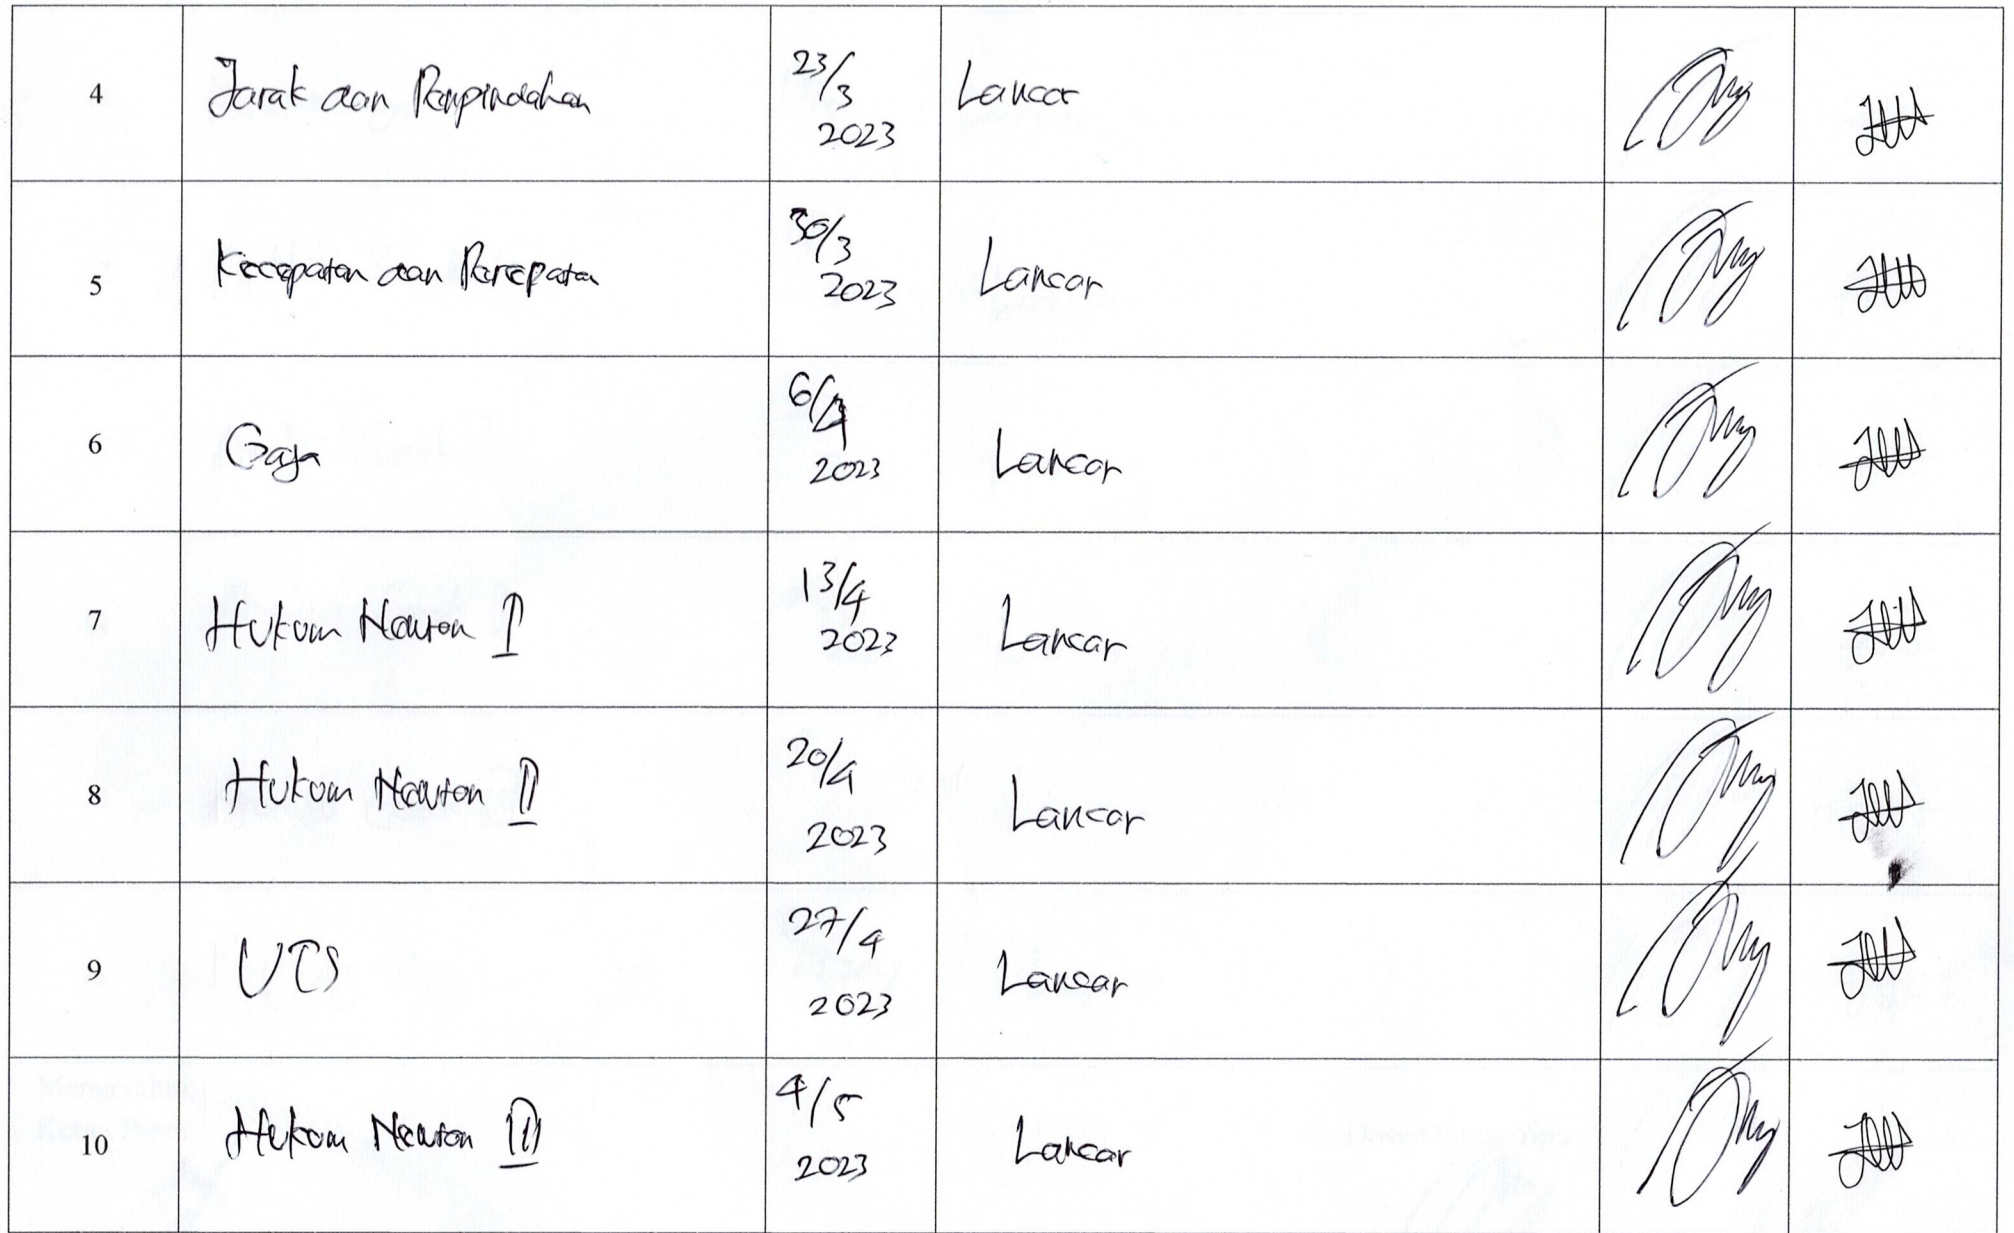 4 Jarak dan Perpindahan 23/3 2023 Lancar
5 Kecepatan dan Percepatan 30/3 2023 Lancar
6 Gaya 6/4 2023 Lancar
7 Hukum Newton I 13/4 2023 Lancar
8 Hukum Newton II 20/4 2023 Lancar
9 UTS 27/4 2023 Lancar
10 Hukum Newton III 4/5 2023 Lancar